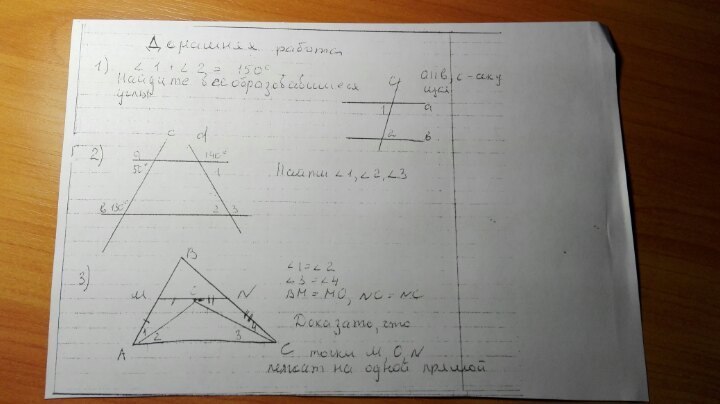 Домашняя работа
1) ∠1+∠2 = 150°
Найдите все образовавшиеся
углы
a||b, c - секу
щая
c
1
a
2
b
2)
c d
a 140°
50° 1
b 130° 2 3
Найти ∠1, ∠2, ∠3
3)
B
M N
1 2 3 4
A C
∠1=∠2
∠3=∠4
BM = MO, NO = NC
Доказать, что
точки M, O, N
лежат на одной прямой